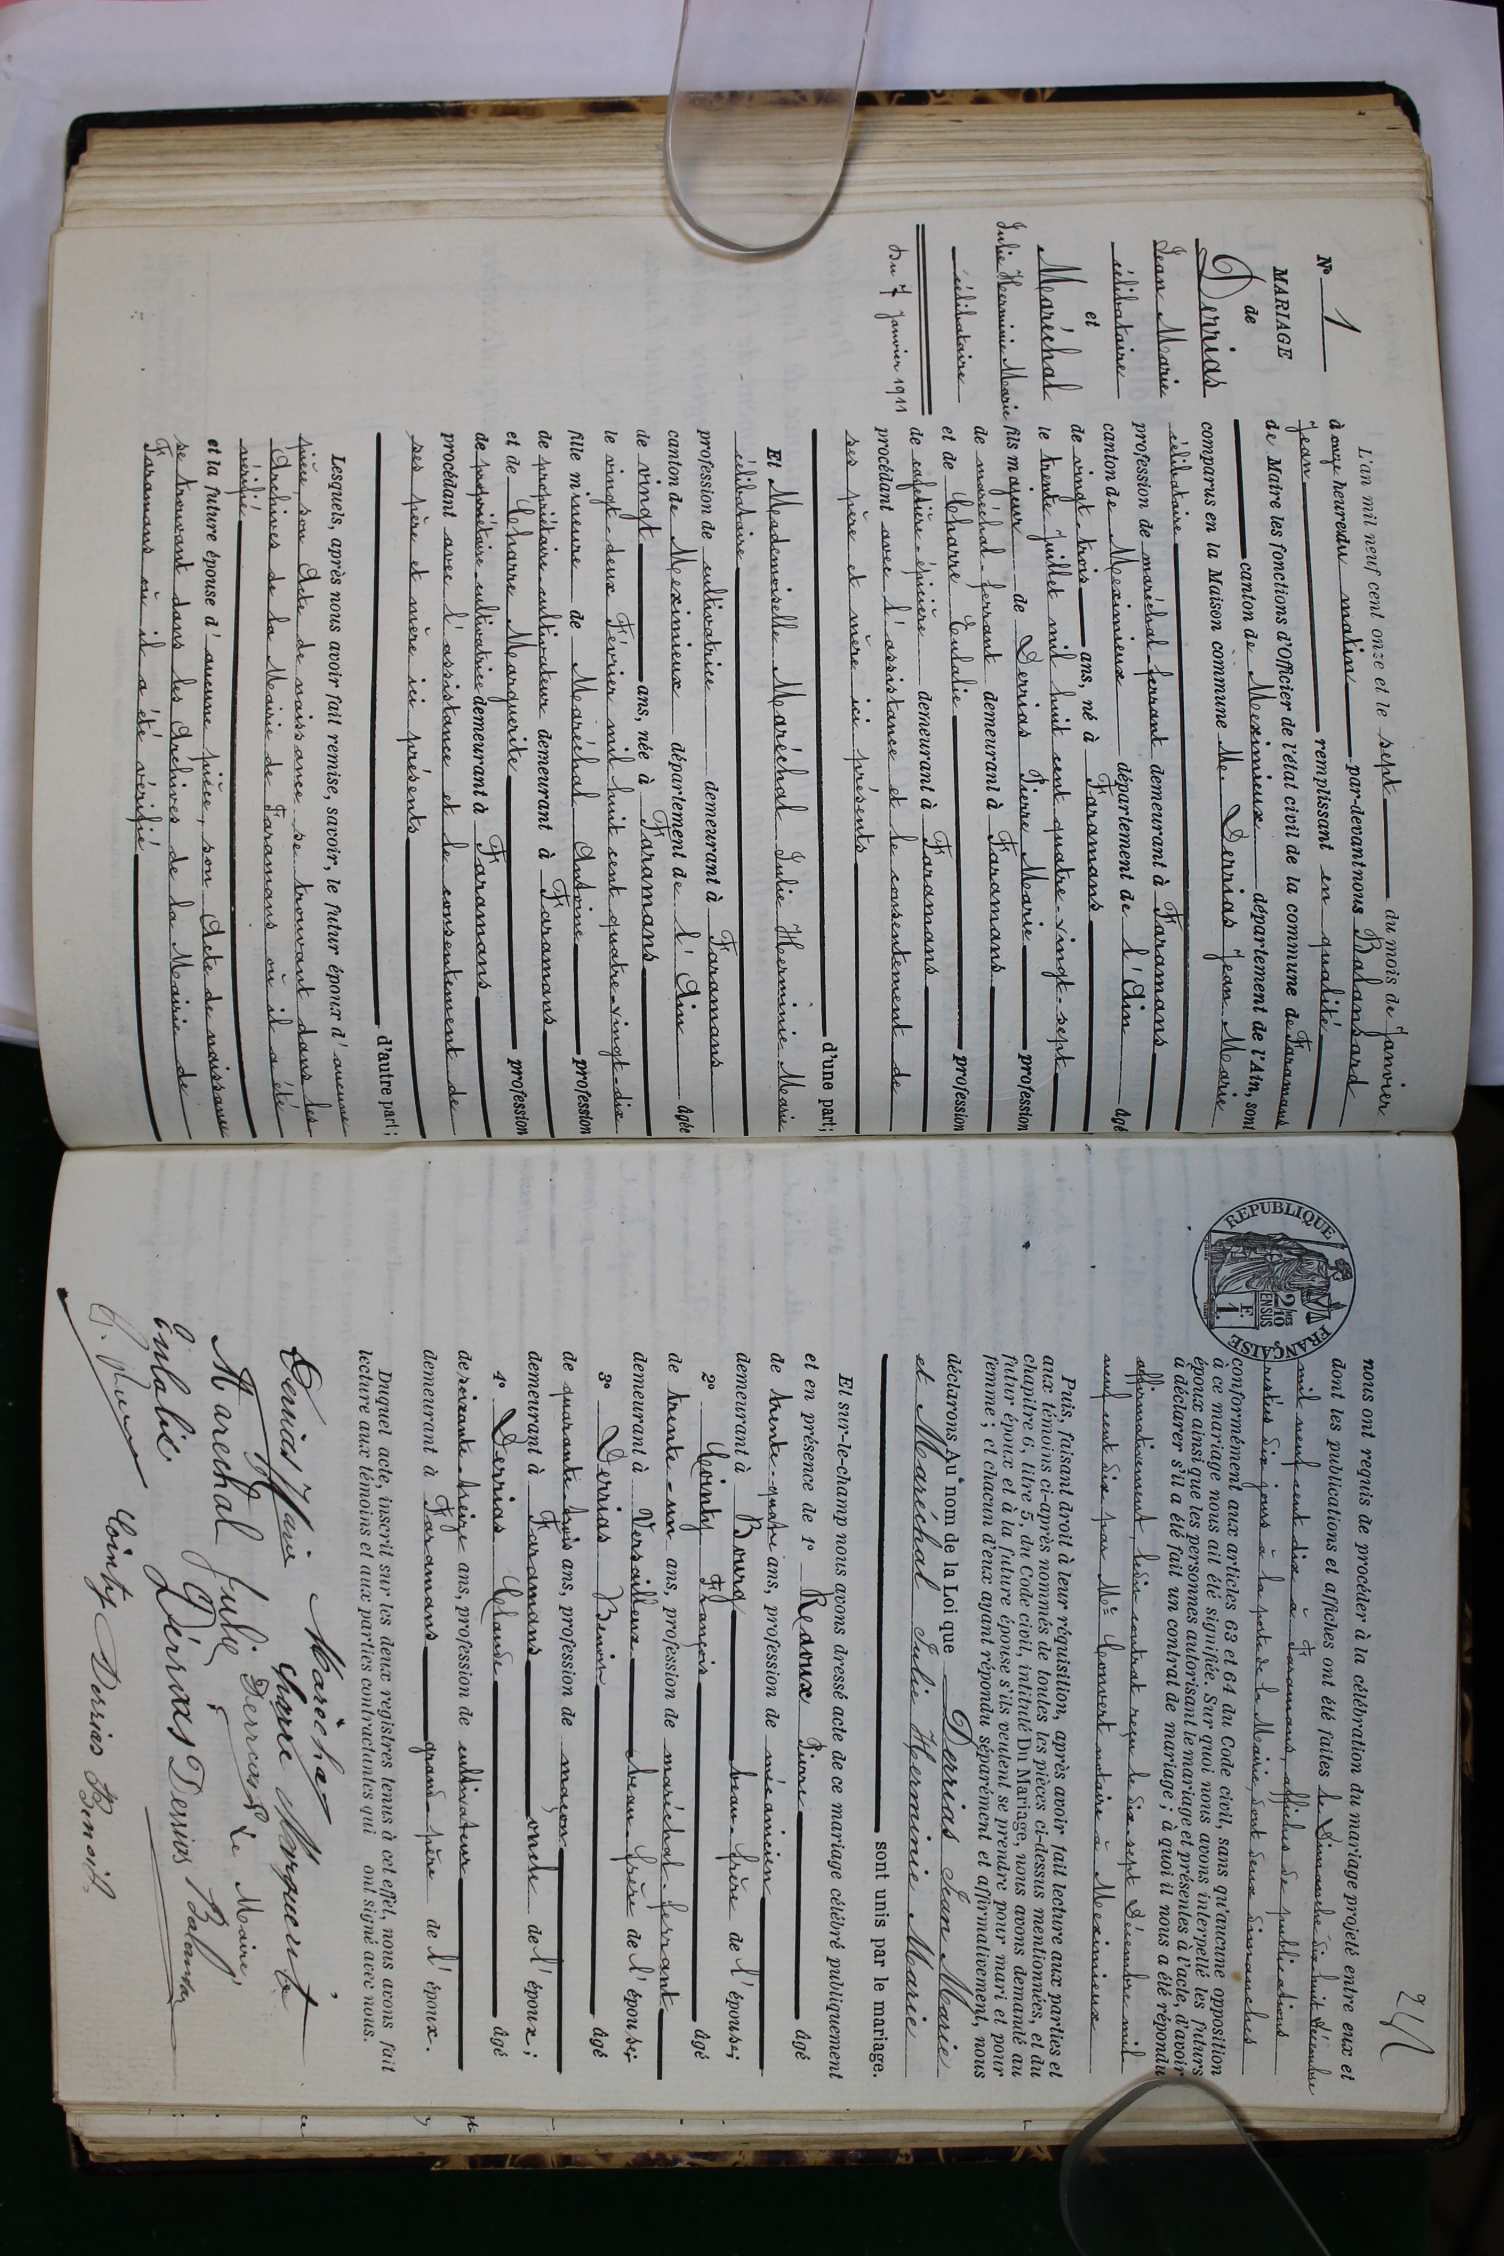 N° 1
MARIAGE
de
Derrias
Jean Marie
célibataire
et
Maréchal
Julie Herminie Marie
célibataire
Du 7 Janvier 1911
L'an mil neuf cent onze et le sept du mois de Janvier
à onze heures du matin par-devant nous Balansard
Jean remplissant en qualité
de Maire les fonctions d'Officier de l'état civil de la commune de Faramans
canton de Meximieux département de l'Ain, sont
comparus en la Maison commune M. Derrias Jean Marie
célibataire
profession de maréchal-ferrant demeurant à Faramans
canton de Meximieux département de l'Ain âgé
de vingt-trois ans, né à Faramans
le trente Juillet mil huit cent quatre-vingt-sept
fils majeur de Derrias Pierre Marie profession
de maréchal-ferrant demeurant à Faramans
et de Charre Eulalie profession
de cafetière-épicière demeurant à Faramans
procédant avec l'assistance et le consentement de
ses père et mère ici présents
d'une part;
Et Mademoiselle Maréchal Julie Herminie Marie
célibataire
profession de cultivatrice demeurant à Faramans
canton de Meximieux département de l'Ain âgée
de vingt ans, née à Faramans
le vingt-deux Février mil huit cent quatre-vingt-dix
fille mineure de Maréchal Antoine profession
de propriétaire-cultivateur demeurant à Faramans
et de Charre Marguerite profession
de propriétaire-cultivatrice demeurant à Faramans
procédant avec l'assistance et le consentement de
ses père et mère ici présents
d'autre part;
Lesquels, après nous avoir fait remise, savoir, le futur époux d'aucune
pièce, son Acte de naissance se trouvant dans les
Archives de la Mairie de Faramans où il a été
vérifié
et la future épouse d'aucune pièce, son Acte de naissance
se trouvant dans les Archives de la Mairie de
Faramans où il a été vérifié
REPUBLIQUE FRANÇAISE
2/10 EN SUS
1 F.
nous ont requis de procéder à la célébration du mariage projeté entre eux et
dont les publications et affiches ont été faites le Dimanche dix-huit Décembre
mil neuf cent dix à Faramans, affiches de publications
restées dix jours à la porte de la Mairie, dont deux dimanches
conformément aux articles 63 et 64 du Code civil, sans qu'aucune opposition
à ce mariage nous ait été signifiée. Sur quoi nous avons interpellé les futurs
époux ainsi que les personnes autorisant le mariage et présentes à l'acte, d'avoir
à déclarer s'il a été fait un contrat de mariage; à quoi il nous a été répondu
affirmativement, ledit contrat reçu le dix sept Décembre mil
neuf cent dix par Me Convert notaire à Meximieux
Puis, faisant droit à leur réquisition, après avoir fait lecture aux parties et
aux témoins ci-après nommés de toutes les pièces ci-dessus mentionnées, et du
chapitre 6, titre 5, du Code civil, intitulé Du Mariage, nous avons demandé au
futur époux et à la future épouse s'ils veulent se prendre pour mari et pour
femme; et chacun d'eux ayant répondu séparément et affirmativement, nous
déclarons Au nom de la Loi que Derrias Jean Marie
et Maréchal Julie Herminie Marie
sont unis par le mariage.
Et sur-le-champ nous avons dressé acte de ce mariage célébré publiquement
et en présence de 1° Redoux Pierre âgé
de trente-quatre ans, profession de mécanicien
demeurant à Bourg beau-frère de l'épouse;
2° Cointy François âgé
de trente-un ans, profession de maréchal-ferrant
demeurant à Versailleux beau-frère de l'épouse;
3° Derrias Benoit âgé
de quarante trois ans, profession de maçon
demeurant à Faramans oncle de l'époux;
4° Derrias Claude âgé
de soixante-treize ans, profession de cultivateur
demeurant à Faramans grand-père de l'époux.
Duquel acte, inscrit sur les deux registres tenus à cet effet, nous avons fait
lecture aux témoins et aux parties contractantes qui ont signé avec nous.
Derrias Marie Maréchal
Charre Marguerite
Marechal Julie Derrias Le Maire,
Eulalie Dérrias Derrias Balansard
Cointy Derrias Benoit